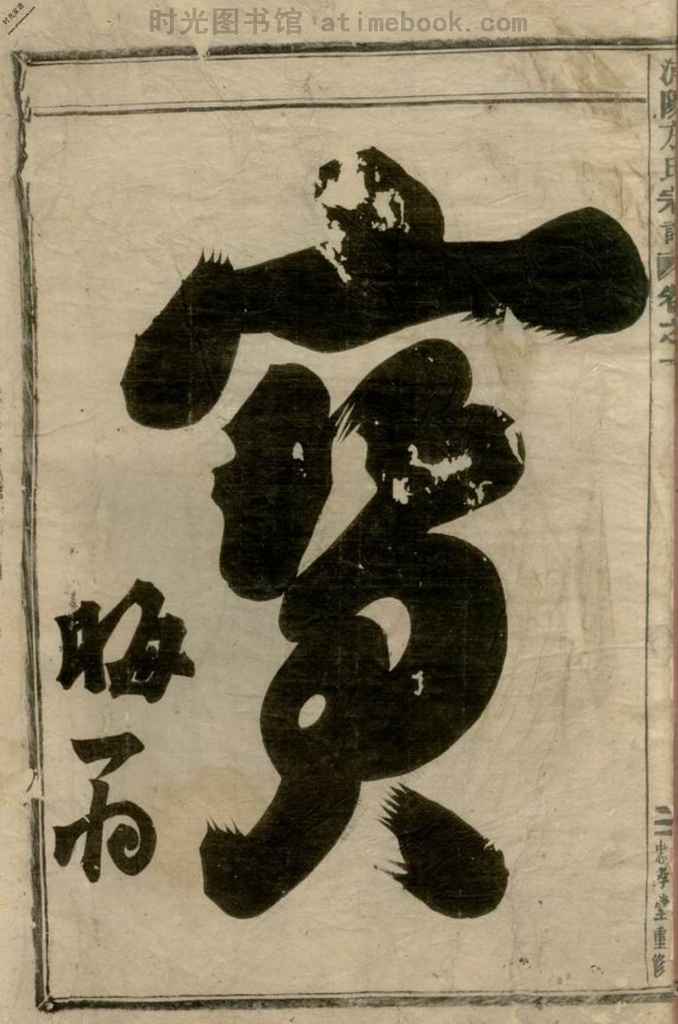 时光图书馆 atimebook.com
方氏宗譜 卷之一
二 忠孝堂重修
寶
晦